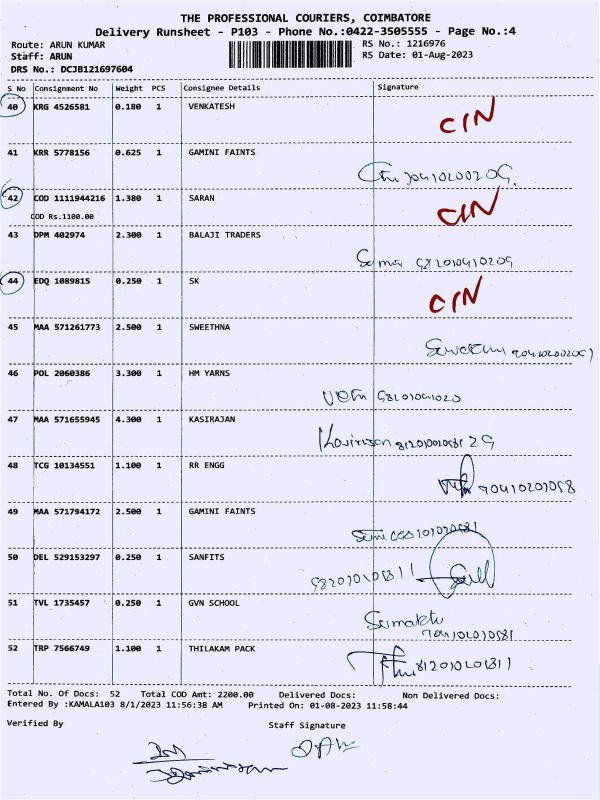 THE PROFESSIONAL COURIERS, COIMBATORE
Delivery Runsheet - P103 - Phone No.:0422-3505555 - Page No.:4
Route: ARUN KUMAR RS No.: 1216976
Staff: ARUN RS Date: 01-Aug-2023
DRS No.: DCJB121697604
S No Consignment No Weight PCS Consignee Details Signature
40 KRG 4526581 0.180 1 VENKATESH CIN
41 KRR 5778156 0.625 1 GAMINI FAINTS
42 COD 1111944216 1.380 1 SARAN CIN
COD Rs.1100.00
43 DPM 402974 2.300 1 BALAJI TRADERS
44 EDQ 1089815 0.250 1 SK CIN
45 MAA 571261773 2.500 1 SWEETHNA
46 POL 2060386 3.300 1 HM YARNS
47 MAA 571655945 4.300 1 KASIRAJAN
48 TCG 10134551 1.100 1 RR ENGG
49 MAA 571794172 2.500 1 GAMINI FAINTS
50 DEL 529153297 0.250 1 SANFITS
51 TVL 1735457 0.250 1 GVN SCHOOL
52 TRP 7566749 1.100 1 THILAKAM PACK
Total No. Of Docs: 52 Total COD Amt: 2200.00 Delivered Docs: Non Delivered Docs:
Entered By :KAMALA103 8/1/2023 11:56:38 AM Printed On: 01-08-2023 11:58:44
Verified By Staff Signature